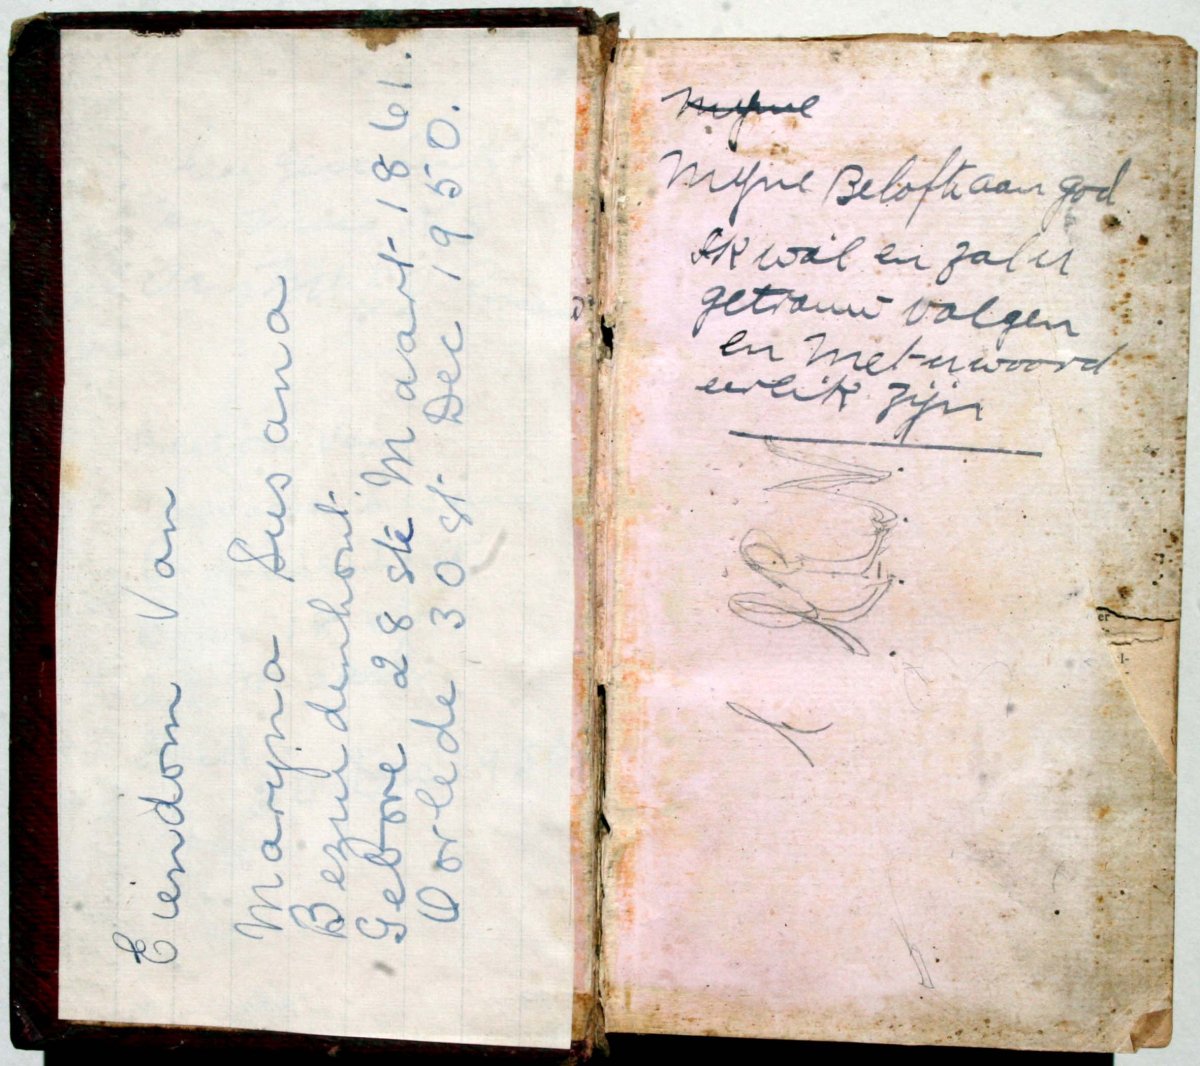 Eiendom Van
Maryna Susanna
Bezuidenhout
Gebore 28ste Maart 1861.
Oorlede 30st Dec 1950.
Myne
Myne Belofte aan god
Ik wil en zal u
getrouw volgen
en Met u woord
eerlik zijn